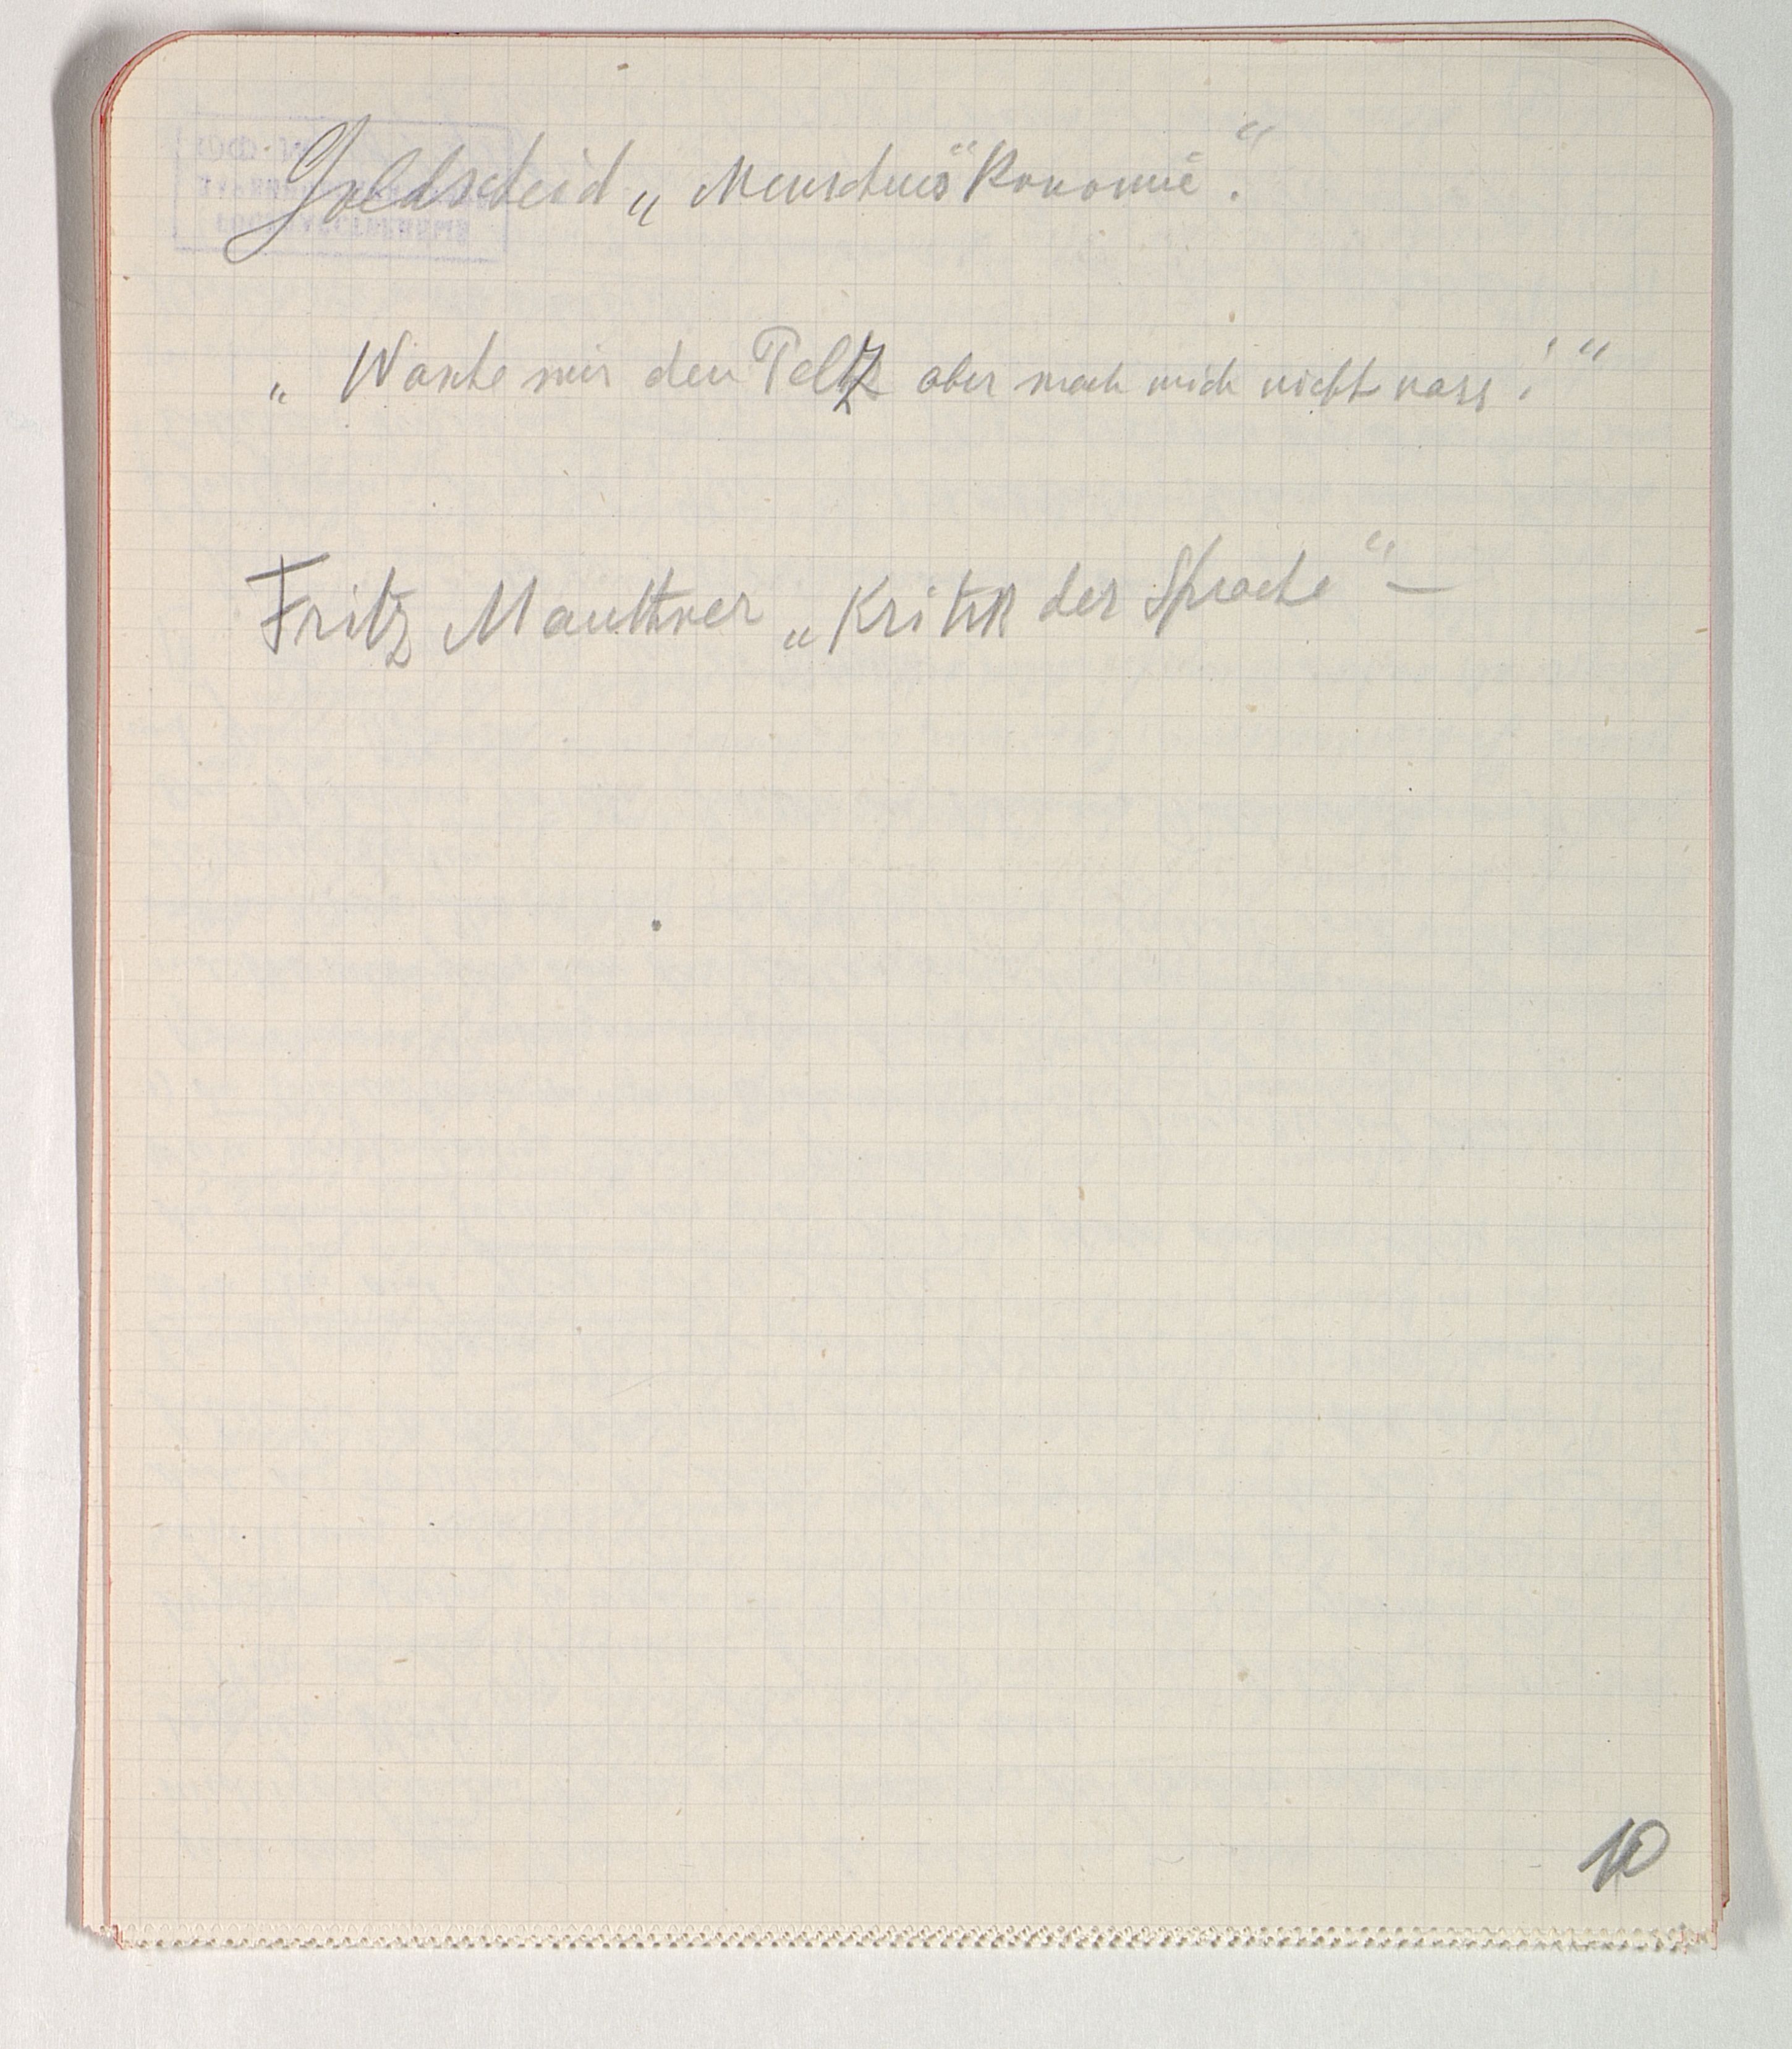 Goldscheid „Menschenökonomie".“
„Wasche mir den Pelz aber mach mich nicht nass!“
Fritz Mauthner „Kritik der Sprache“ —
10